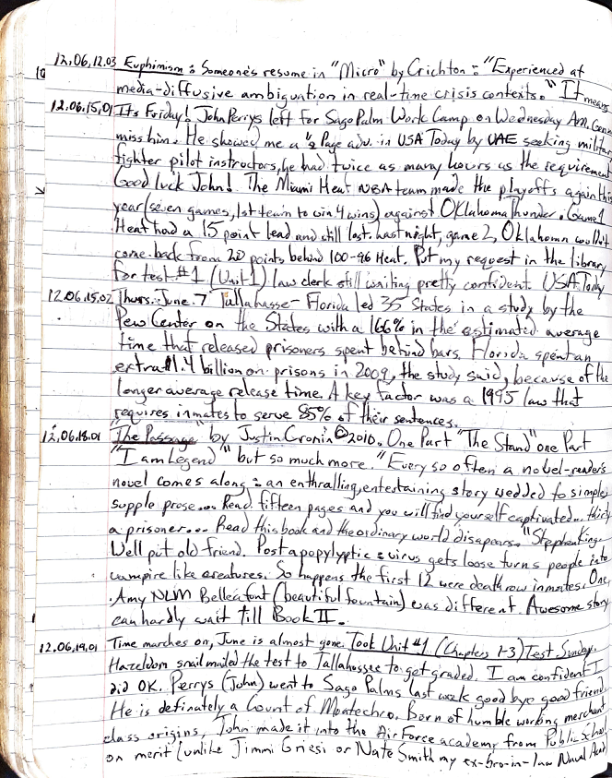 12,06,12.03 Euphimism : Someone's resume in "Micro" by Crichton : "Experienced at
media-diffusive ambiguation in real-time crisis contexts." It means
12.06.15,01 Its Friday! John Perrys left for Sago Palm Work Camp on Wednesday Am. Gonna
miss him. He showed me a ½ Page adv. in USA Today by UAE seeking military
fighter pilot instructors, he had twice as many hours as the requirement
Good luck John! The Miami Heat NBA team made the playoffs again this
year (seven games, 1st team to win 4 wins) against Oklahoma Thunder. Game 1
Heat had a 15 point lead and still lost. Last night, game 2, Oklahoma
come back from 20 points behind 100-96 Heat. Put my request in the library
for test #1 (Unit 1) law clerk still waiting pretty confident. USA Today
12.06.15.02 Thurs. June 7 Tallahasse - Florida led 35 States in a study by the
Pew Center on the States with a 166% in the estimated average
time that released prisoners spent behind bars. Florida spent an
extra 1.4 billion on prisons in 2009, the study said, because of the
longer average release time. A key factor was a 1995 law that
requires inmates to serve 85% of their sentences.
12,06,18.01 "The Passage" by Justin Cronin ©2010. One Part "The Stand" one Part
"I am Legend" but so much more. "Every so often a novel-readers
novel comes along : an enthralling, entertaining story wedded to simple
supple prose... Read fifteen pages and you will find yourself captivated..
a prisoner... Read this book and the ordinary world disapears." Stephen King.
Well put old friend. Post apopylyptic virus gets loose turns people into
vampire like creatures. So happens the first 12 were deathrow inmates. One,
Amy NLM Bellefont (beautiful fountain) was different. Awesome story
can hardly wait till Book II.
12,06,19,01 Time marches on, June is almost gone. Took Unit #1 (Chapters 1-3) Test Sunday.
Hazeldom snail mailed the test to Tallahassee to get graded. I am confident I
did OK. Perrys (John) went to Sago Palms last week good bye good friend
He is definately a Count of Montechro. Born of humble working merchant
class origins, John made it into the Air Force academy from Public school
on merit (unlike Jimmi Griesi or Nate Smith my ex-bro-in-law Naval Acad